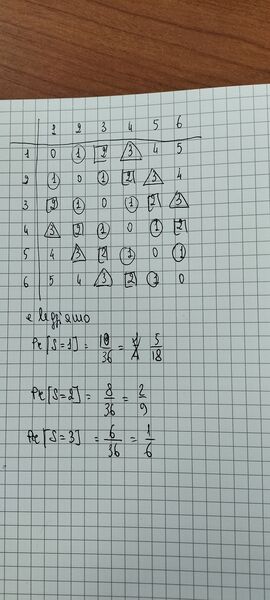 2 2 3 4 5 6
1 0 1 2 3 4 5
2 1 0 1 2 3 4
3 2 1 0 1 2 3
4 3 2 1 0 1 2
5 4 3 2 1 0 1
6 5 4 3 2 1 0
e leggiamo
Pr [S=1] = 10/36 = 5/18
Pr [S=2] = 8/36 = 2/9
Pr [S=3] = 6/36 = 1/6